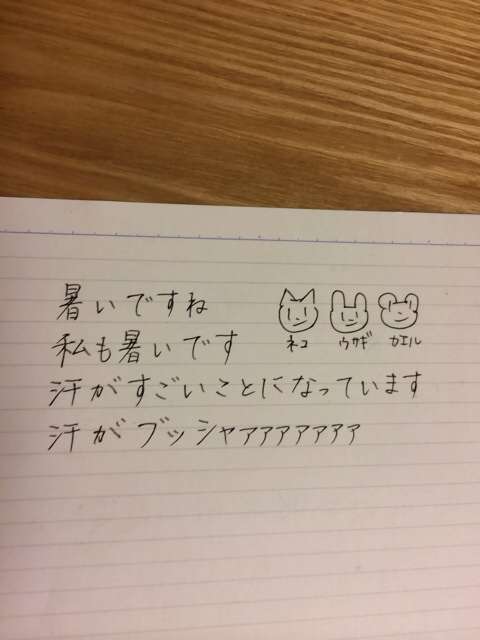 暑いですね
私も暑いです
汗がすごいことになっています
汗がブッシャァァァァァァァ
ネコ ウサギ カエル